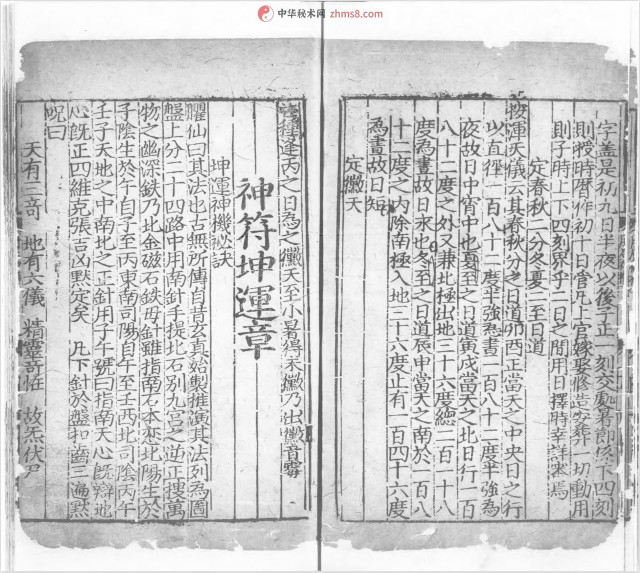 中华秘术网 zhms8.com
字蓋是初九日半夜以後子正一刻交處暑節係下四刻
則授時曆作初十日管凡上官嫁娶修造安葬一切動用
則子時上下四刻界乎二日之間用日擇時幸詳察焉
定春秋二分冬夏二至日道
按渾天儀云其春秋分之日道卯酉正當天之中央日之行
以直徑一百八十二度半強為晝一百八十二度半強為
夜故日中宵中也夏至之日道寅戌當天之北日行一百
八十二度之外又兼北極出地三十六度總二百一十八
度為晝故日永也冬至之日道辰申當天之南於一百八
十二度之内除南極入地三十六度止有一百四十六度
為晝故日短
定黴天
芒種逢丙之日為之黴天至小暑得未黴乃出黴音霉
神符坤運章
坤運神機祕訣
臞仙曰其法也古無所傳自昔玄真始製推演其法列為圖
盤上分二十四路中用南針手提北石別九宮之逆正捜萬
物之幽深鉄乃北金磁石鉄母針雖指南石本恋北陽生於
子陰生於午自子至丙東南司陽自午至壬西北司陰丙午
壬子天地之中南北之正針用子午號曰指南天心既辯地
心既正四維克張吉凶默定矣 凡下針於盤扣齒三遍默
呪曰
天有三奇 地有六儀 精靈奇怪 故炁伏尸